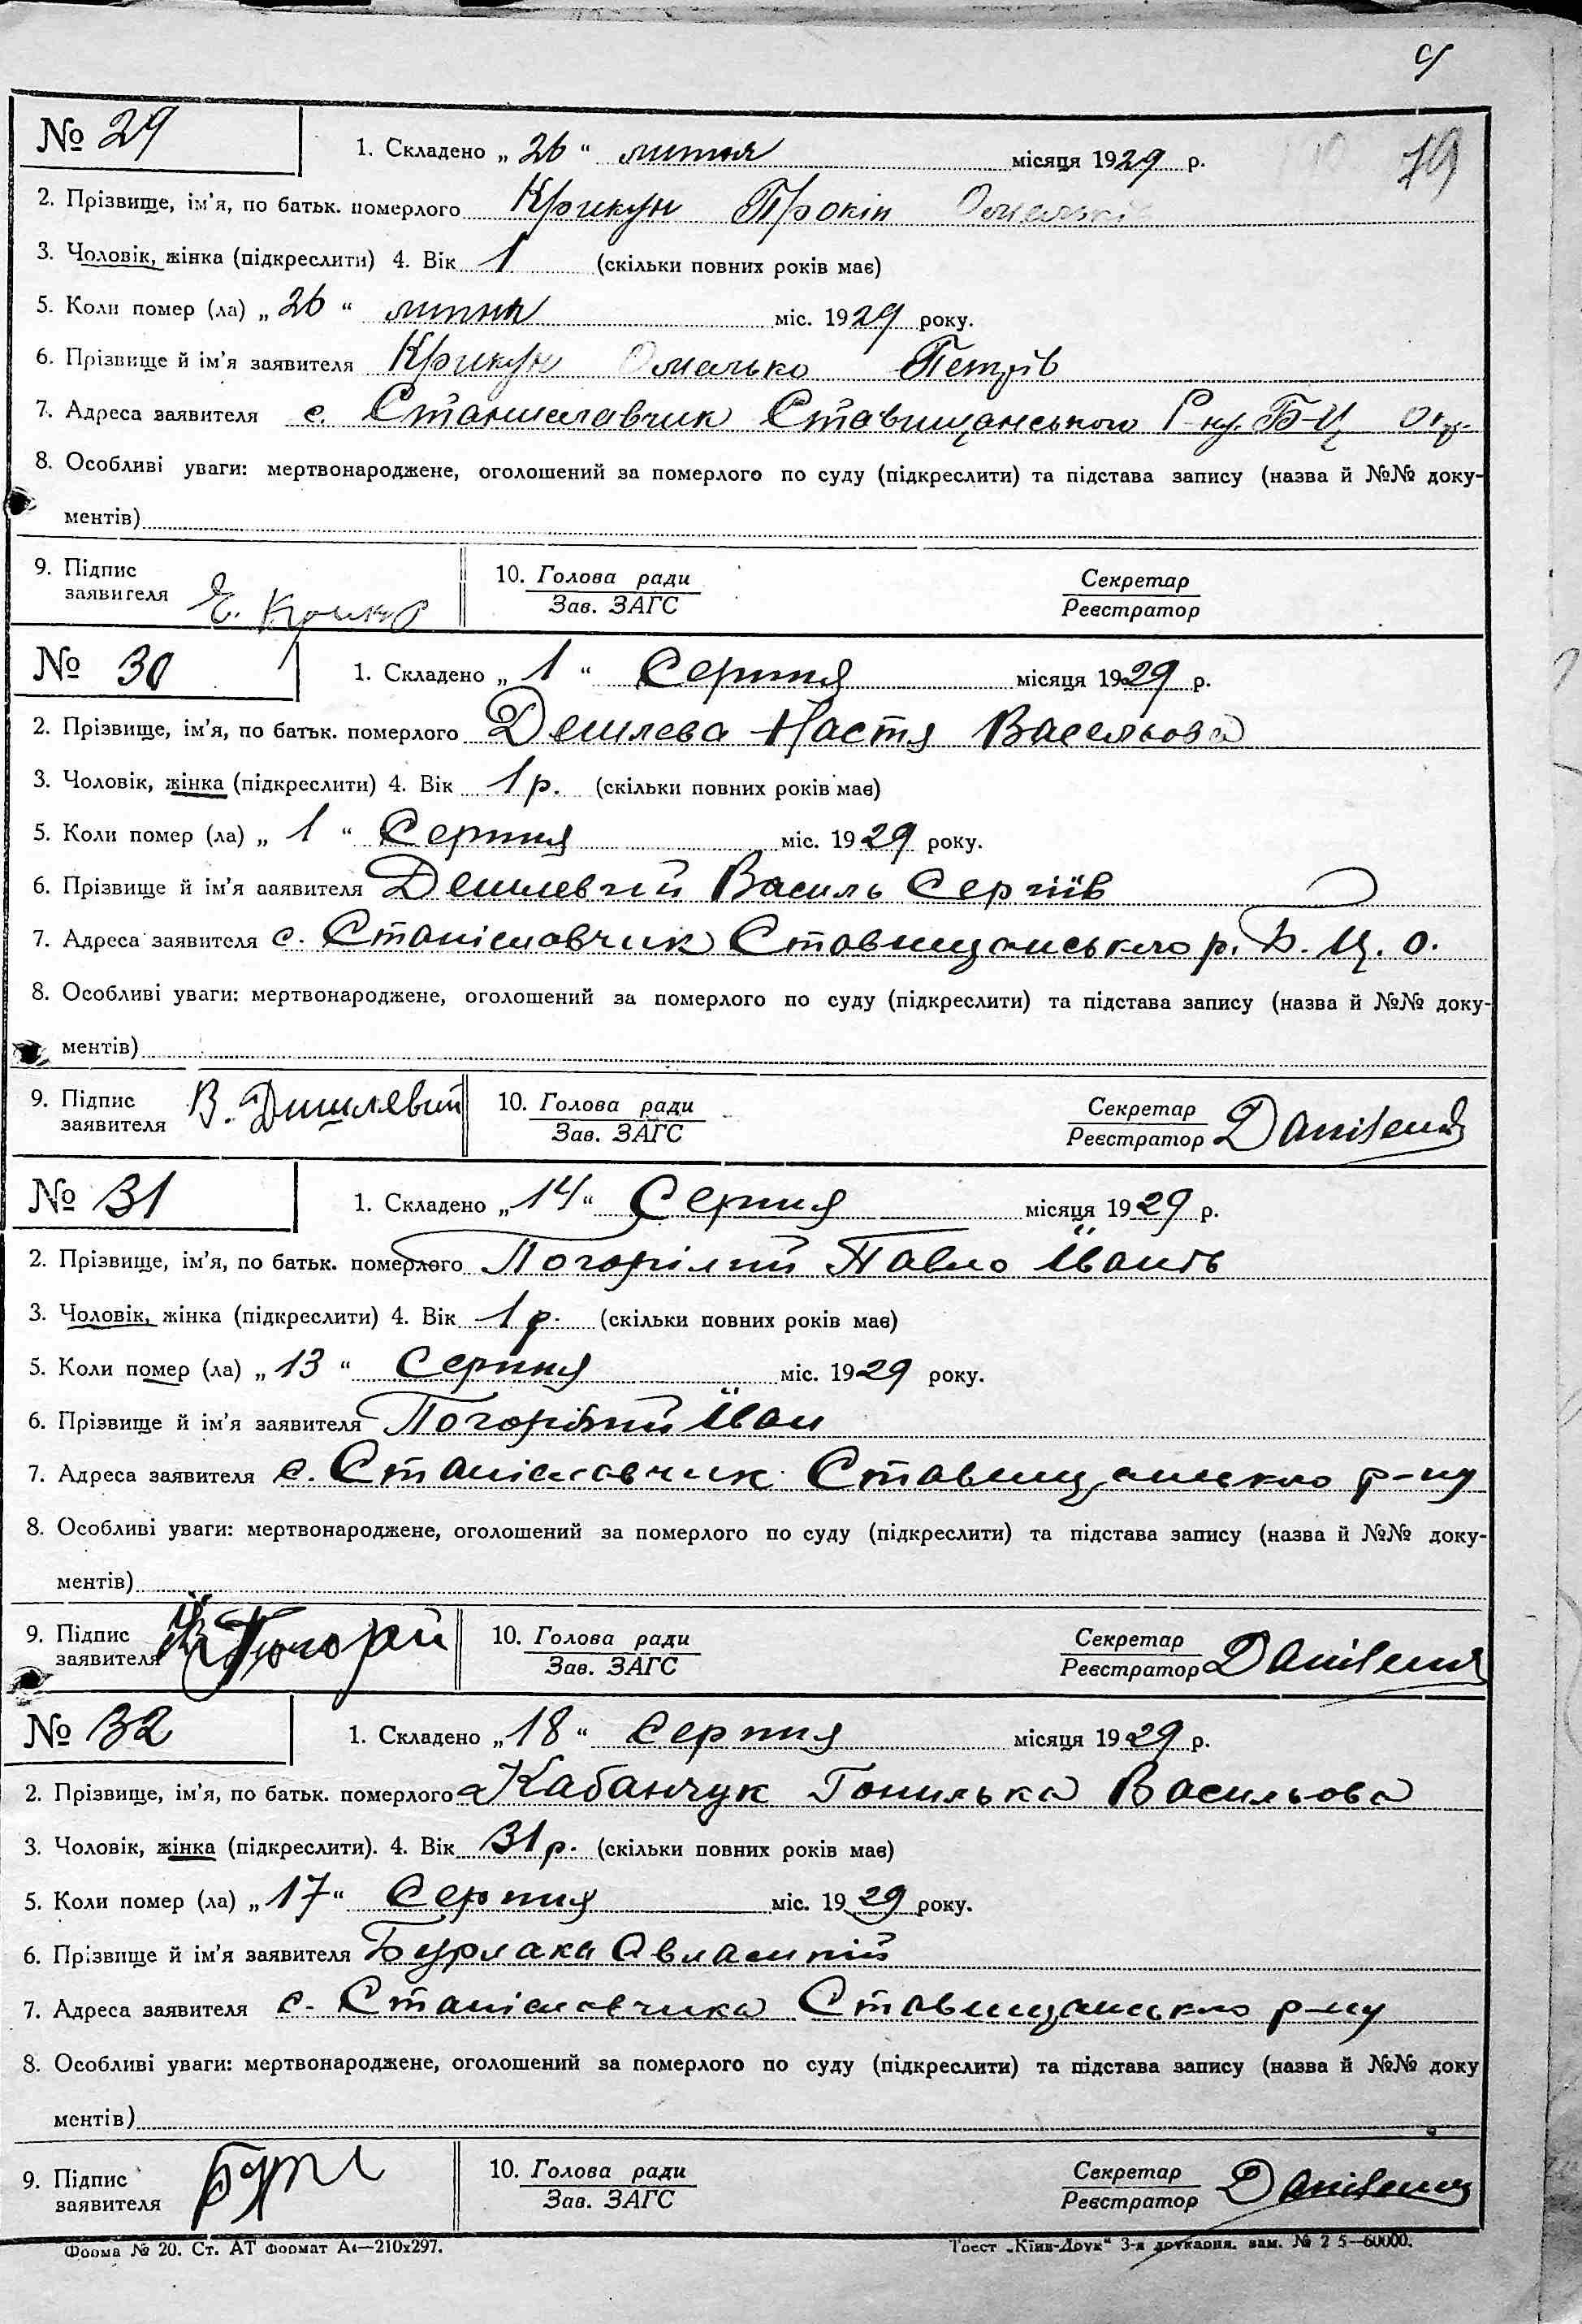 79
№ 29 1. Складено „ 26 “ липня місяця 1929 р.
2. Прізвище, ім'я, по батьк. померлого Крикун Прокіп Омельків
3. Чоловік, жінка (підкреслити) 4. Вік 1 (скільки повних років має)
5. Коли помер (ла) „ 26 “ липня міс. 1929 року.
6. Прізвище й ім'я заявителя Крикун Омелько Петрів
7. Адреса заявителя с. Станиславчик Ставищанського Р-ну Б-Ц Окр.
8. Особливі уваги: мертвонароджене, оголошений за померлого по суду (підкреслити) та підстава запису (назва й №№ доку-
ментів)
9. Підпис заявителя 10. Голова ради Зав. ЗАГС Секретар Реєстратор
№ 30 1. Складено „ 1 “ Серпня місяця 1929 р.
2. Прізвище, ім'я, по батьк. померлого Дешлева Настя Васельова
3. Чоловік, жінка (підкреслити) 4. Вік 1 р. (скільки повних років має)
5. Коли помер (ла) „ 1 “ Серпня міс. 1929 року.
6. Прізвище й ім'я заявителя Дешлевий Василь Сергіїв
7. Адреса заявителя с. Станіславчик Ставищанського р. Б. Ц. о.
8. Особливі уваги: мертвонароджене, оголошений за померлого по суду (підкреслити) та підстава запису (назва й №№ доку-
ментів)
9. Підпис заявителя В. Дишлевий 10. Голова ради Зав. ЗАГС Секретар Реєстратор
№ 31 1. Складено „ 14 “ Серпня місяця 1929 р.
2. Прізвище, ім'я, по батьк. померлого Погорілий Павло Йванів
3. Чоловік, жінка (підкреслити) 4. Вік 1 р. (скільки повних років має)
5. Коли помер (ла) „ 13 “ Серпня міс. 1929 року.
6. Прізвище й ім'я заявителя Погорілий Йван
7. Адреса заявителя с. Станіславчик Ставищанського р-ну
8. Особливі уваги: мертвонароджене, оголошений за померлого по суду (підкреслити) та підстава запису (назва й №№ доку-
ментів)
9. Підпис заявителя 10. Голова ради Зав. ЗАГС Секретар Реєстратор
№ 32 1. Складено „ 18 “ Серпня місяця 1929 р.
2. Прізвище, ім'я, по батьк. померлого Кабанчук Гонилька Васильова
3. Чоловік, жінка (підкреслити). 4. Вік 31 р. (скільки повних років має)
5. Коли помер (ла) „ 17 “ Серпня міс. 1929 року.
6. Прізвище й ім'я заявителя Бурлака
7. Адреса заявителя с. Станіславчика Ставищанського р-ну
8. Особливі уваги: мертвонароджене, оголошений за померлого по суду (підкреслити) та підстава запису (назва й №№ доку
ментів)
9. Підпис заявителя 10. Голова ради Зав. ЗАГС Секретар Реєстратор
Форма № 20. Ст. АТ Формат А4—210х297. Трест „Київ-Друк“ 3-я друкарня. зам. № 2 5—60000.